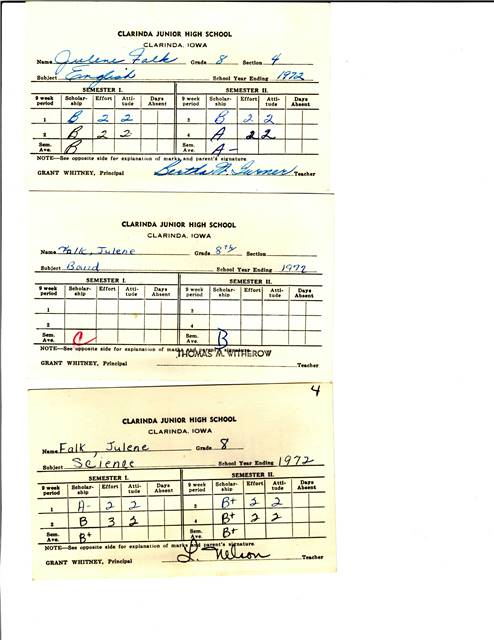 CLARINDA JUNIOR HIGH SCHOOL
CLARINDA, IOWA
Name Julene Falk Grade 8 Section 4
Subject English School Year Ending 1972
SEMESTER I. SEMESTER II.
9 week period Scholar-ship Effort Atti-tude Days Absent 9 week period Scholar-ship Effort Atti-tude Days Absent
1 B 2 2 3 B 2 2
2 B 2 2 4 A 2 2
Sem. Ave. B Sem. Ave. A-
NOTE—See opposite side for explanation of marks and parent's signature.
GRANT WHITNEY, Principal Bertha M. Turner Teacher
CLARINDA JUNIOR HIGH SCHOOL
CLARINDA, IOWA
Name Falk, Julene Grade 8th Section
Subject Band School Year Ending 1972
SEMESTER I. SEMESTER II.
9 week period Scholar-ship Effort Atti-tude Days Absent 9 week period Scholar-ship Effort Atti-tude Days Absent
1 3
2 4
Sem. Ave. C Sem. Ave. B
NOTE—See opposite side for explanation of marks and parent's signature.
THOMAS M. WITHEROW
GRANT WHITNEY, Principal Teacher
4
CLARINDA JUNIOR HIGH SCHOOL
CLARINDA, IOWA
Name Falk, Julene Grade 8
Subject Science School Year Ending 1972
SEMESTER I. SEMESTER II.
9 week period Scholar-ship Effort Atti-tude Days Absent 9 week period Scholar-ship Effort Atti-tude Days Absent
1 A- 2 2 3 B+ 2 2
2 B 3 2 4 B+ 2 2
Sem. Ave. B+ Sem. Ave. B+
NOTE—See opposite side for explanation of marks and parent's signature.
GRANT WHITNEY, Principal L. Nelson Teacher